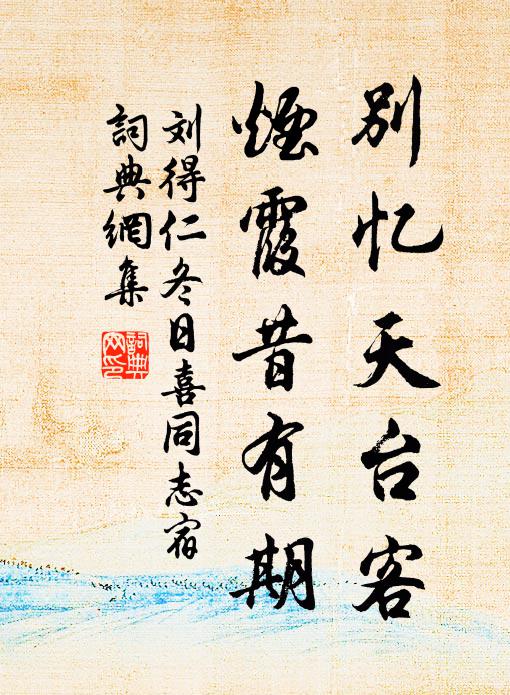 別忆天台客
煙霞昔有期
刘得仁冬日喜同志宿
詞典網集
詞典
网印